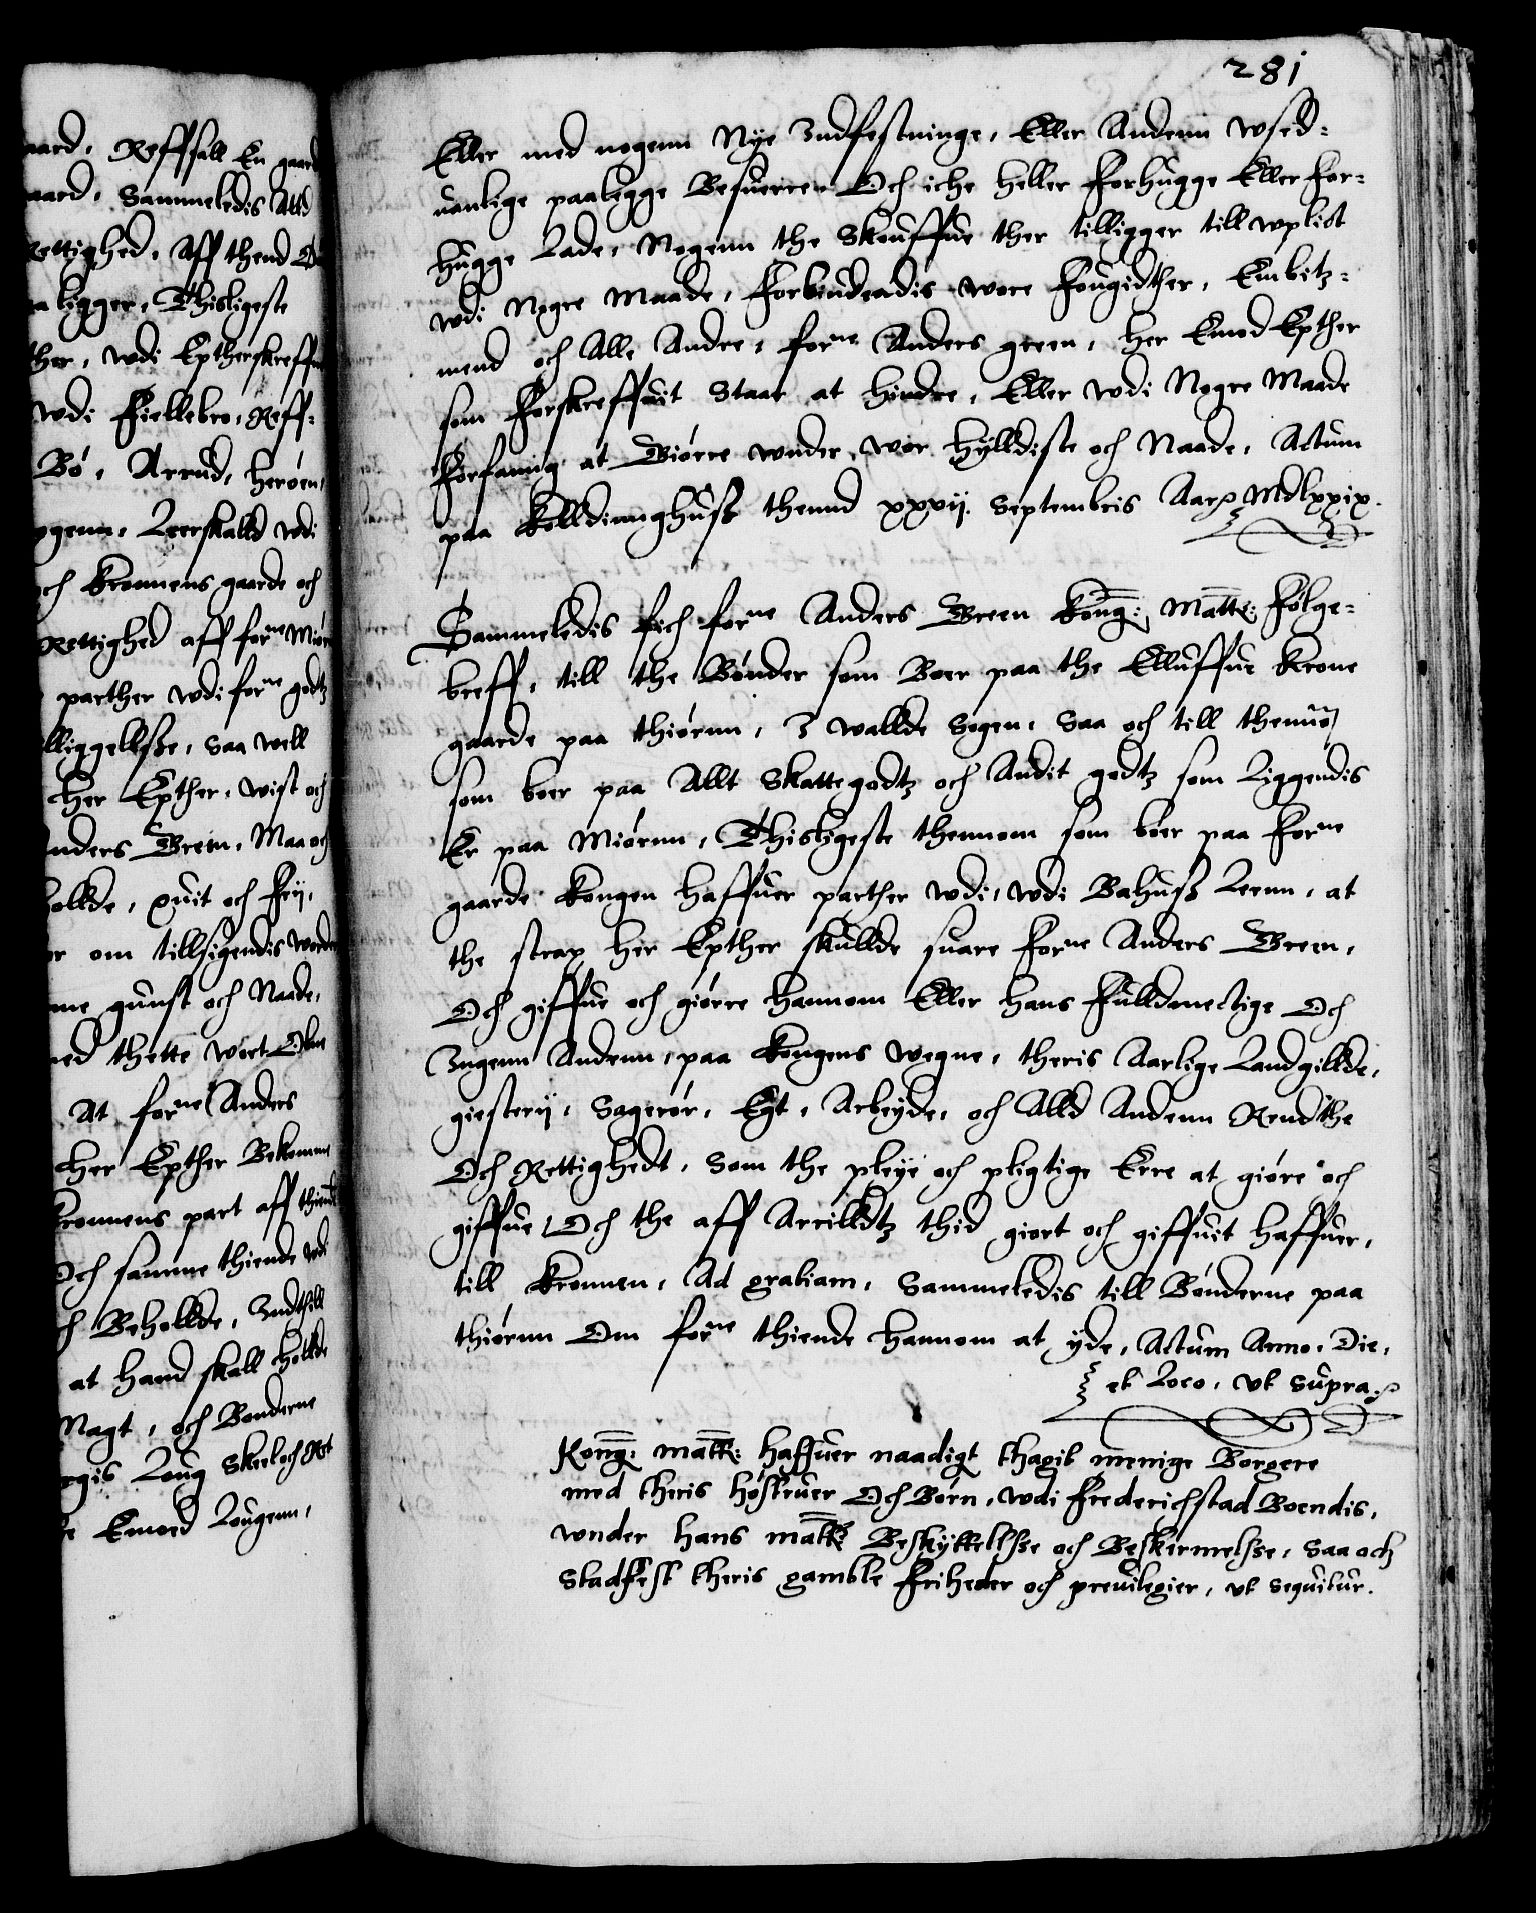 aard, Reffsall En gaard
aard, Sammeledis Alld
Rettighed, Aff thend
ligger, Thisligeste
ther, wdi Eptherskreffne
wdi Fiellebro, Reff-
Bó, Arrud, heróen,
ggenn, Leerskalld wdi
och Kronnens gaarde och
Rettighed aff forne Miór
parther wdi forne godtz
lliggellsze, saa well
her Epther, wist och
nders Green, Maa och
hollde, quit och frij,
or om tillsigendis worder
me gunst och Naade,
ned thette wort Obne
At forne Anders
her Epther Bekomme
Kronnens part aff thiende
Och samme thiende wdi
h Beholde, Indthill
at hand skall holde
Magt, och Bonderne
rgis Loug Skeel och Ret
Emoed Lougenn,
281
Eller med nogenn Nye Indfestninge, Eller Andenn wsed-
uanlige paalegge Besuerre Och iche heller Forhugge Eller For-
hugge Lade, Nogenn the Skouffue ther tilligger till wplict
wdi Nogre Maade, Forbindendis wore Fougidther, Embitz-
mend och Alle Andre, forne Anders green, her Emod Epther
som Forskreffuit Staar at hindre, Eller wdi Nogre Maade
Forfanng at Giórre wnder wor hylldiste och Naade, Actum
paa Kolldinnghusz thennd xxvij. Septembris Aar Mdlxxix.
Sammeledis fich forne Anders Green Kong: Matts: Fólge-
breff, till the Bónder som Boer paa the Elluffue Krone
gaarde paa thiórnn, I wallde Sogen, Saa och till thennom
som boer paa Allt Skattegodtz och Andit godtz som Liggendis
Er paa Miórnn, Thisligeste thennom som boer paa forne
gaarde Kongen haffuer parther wdi, wdi Bahusz Leenn, at
the strax her Epther skullde suare forne Anders Green,
Och giffue och giórre hannom Eller hans Fulldmectige Och
Ingenn Andenn, paa Kongens wegne, theris Aarlige Landgillde,
giesterij, Sagerór, Egt, Arbeyde, och Alld Andenn Rendthe
Och Rettighedt, som the pleye och pligtige Erre at gióre och
giffue, Och the aff Arrilldtz thid giort och giffuit haffuer,
till Kronnen, Ad gratiam, Sammeledis till Bónderne paa
thiórnn Om forne thiende hannom at yde, Actum Anno, Die,
et Loco, vt Supra.
Kong: matt: haffuer naadigt thagit menige Borgere
med theris hóstruer Och Bórn, wdi Frederichstad Boendis,
wnder hans matts Beskyttellsze och Beskermelsze, Saa och
Stadfest theris gamble Friheder och preuilegier, vt sequitur.